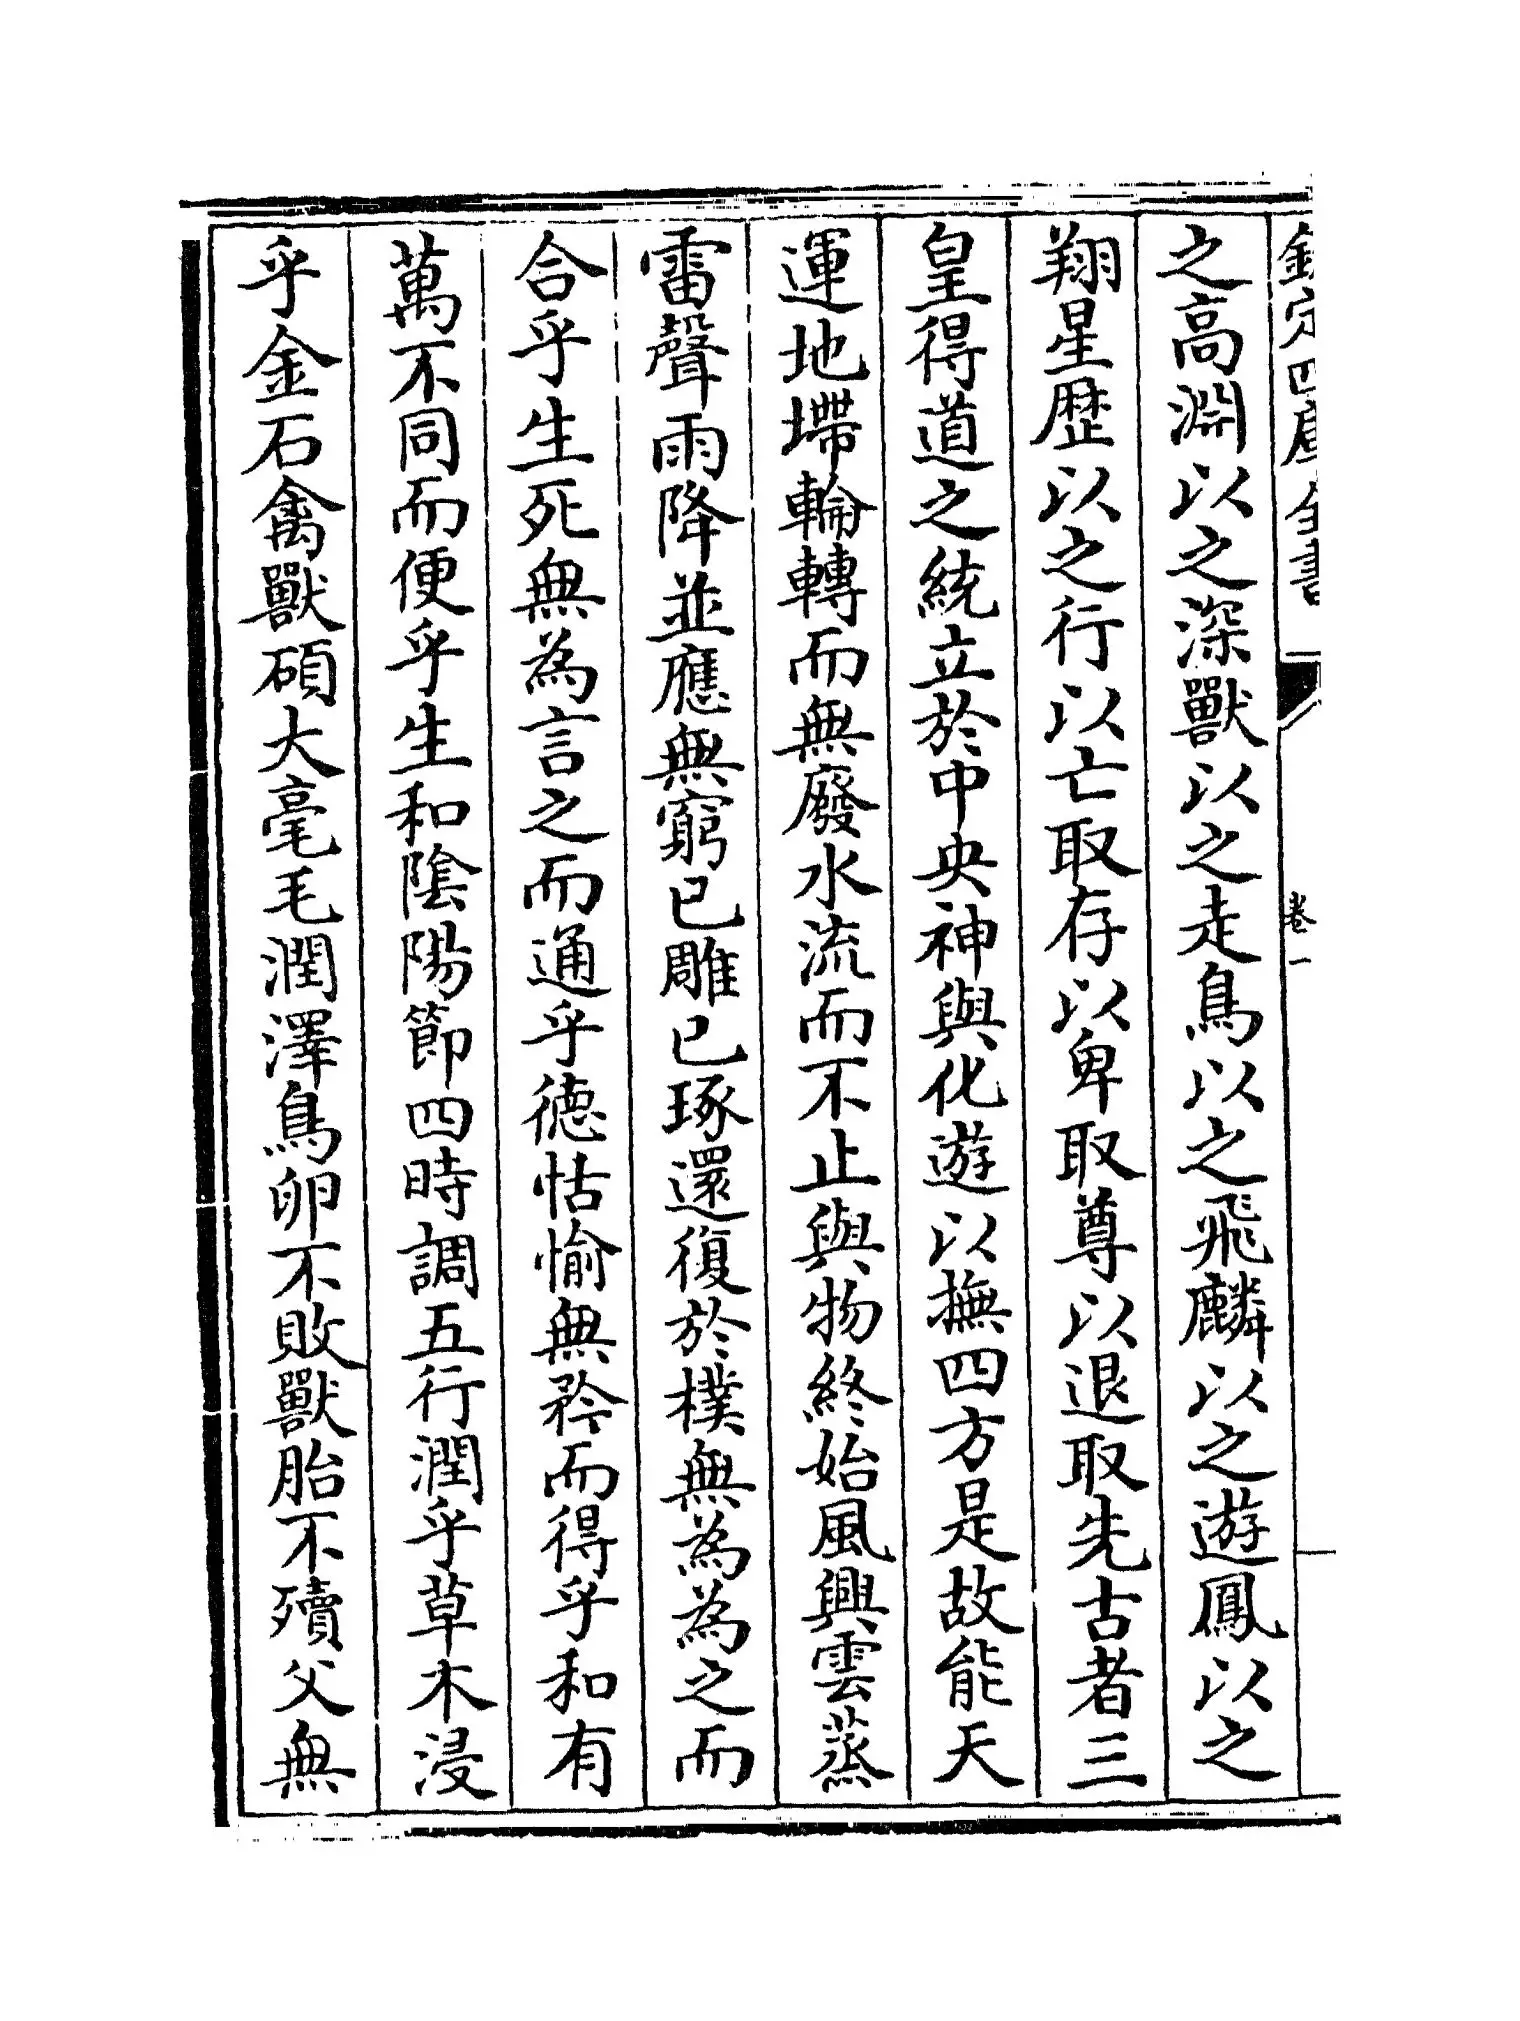 欽定四庫全書
卷一
之高淵以之深獸以之走鳥以之飛麟以之遊鳳以之
翔星歷以之行以亡取存以卑取尊以退取先古者三
皇得道之統立於中央神與化遊以撫四方是故能天
運地墆輪轉而無廢水流而不止與物終始風興雲蒸
雷聲雨降並應無窮已雕已琢還復於樸無為為之而
合乎生死無為言之而通乎德恬愉無矜而得乎和有
萬不同而便乎生和陰陽節四時調五行潤乎草木浸
乎金石禽獸碩大毫毛潤澤鳥卵不敗獸胎不殰父無